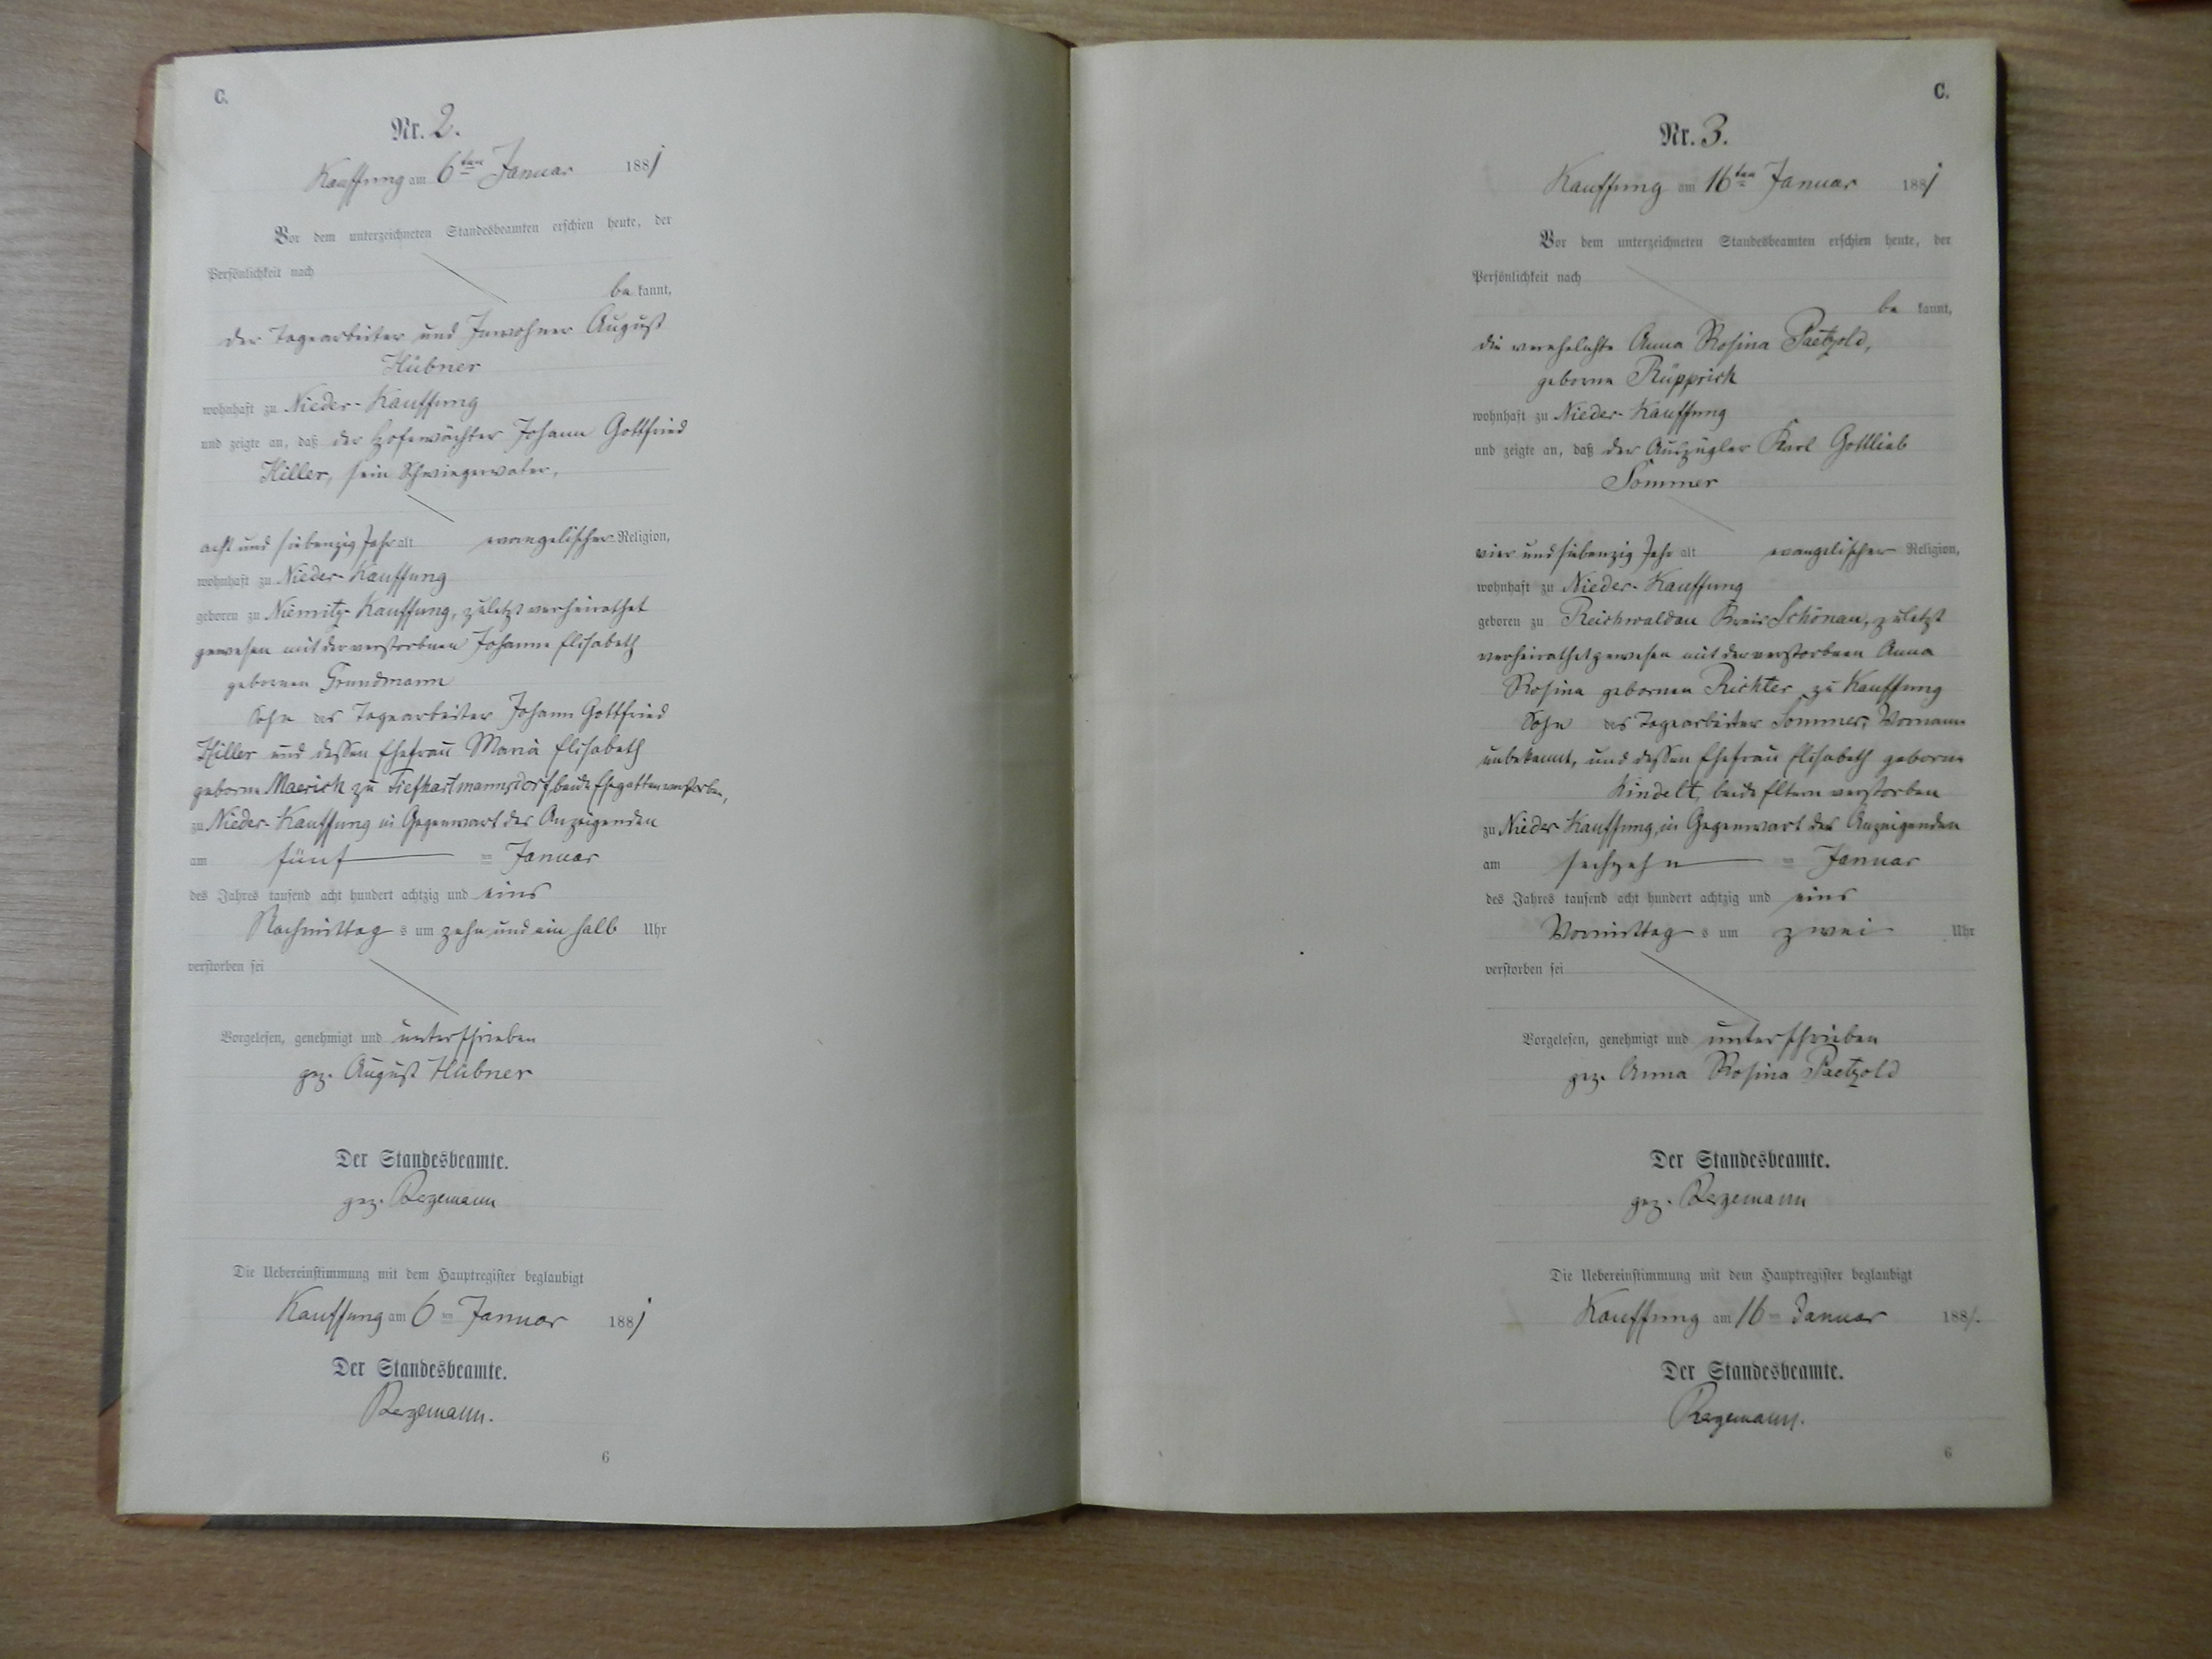 C.
Nr. 2.
Kauffung am 6ten Januar 1881
Vor dem unterzeichneten Standesbeamten erschien heute, der
Persönlichkeit nach
be kannt,
der Tagearbeiter und Inwohner August
Hübner
wohnhaft zu Nieder-Kauffung
und zeigte an, daß der Hofewächter Johann Gottfried
Hiller, sein Schwiegervater,
acht und siebenzig Jahr alt evangelischer Religion,
wohnhaft zu Nieder-Kauffung
geboren zu Niemitz-Kauffung, zuletzt verheirathet
gewesen mit der verstorbnen Johanne Elisabeth
gebornen Grundmann
Sohn des Tagearbeiter Johann Gottfried
Hiller und dessen Ehefrau Maria Elisabeth
geborne Maerick zu Tiefhartmannsdorf, beide Ehegatten verstorben,
zu Nieder-Kauffung in Gegenwart des Anzeigenden
am fünf ten Januar
des Jahres tausend acht hundert achtzig und eins
Nachmittag s um zehn und ein halb Uhr
verstorben sei
Vorgelesen, genehmigt und unterschrieben
gez. August Hübner
Der Standesbeamte.
gez. Regemann
Die Uebereinstimmung mit dem Hauptregister beglaubigt
Kauffung am 6 ten Januar 1881
Der Standesbeamte.
Regemann.
6
C.
Nr. 3.
Kauffung am 16ten Januar 1881
Vor dem unterzeichneten Standesbeamten erschien heute, der
Persönlichkeit nach
be kannt,
die verehelichte Anna Rosina Paetzold,
geborne Rüpprich
wohnhaft zu Nieder-Kauffung
und zeigte an, daß der Auszügler Karl Gottlieb
Sommer
vier und siebenzig Jahr alt evangelischer Religion,
wohnhaft zu Nieder-Kauffung
geboren zu Reichwaldau Kreis Schönau, zuletzt
verheirathet gewesen mit der verstorbnen Anna
Rosina gebornen Richter zu Kauffung
Sohn des Tagearbeiter Sommer, Vorname
unbekannt, und dessen Ehefrau Elisabeth geborne
Kindelt, beide Eltern verstorben
zu Nieder Kauffung, in Gegenwart der Anzeigenden
am sechzehn ten Januar
des Jahres tausend acht hundert achtzig und eins
Vormittag s um zwei Uhr
verstorben sei
Vorgelesen, genehmigt und unterschrieben
gez. Anna Rosina Paetzold
Der Standesbeamte.
gez. Regemann
Die Uebereinstimmung mit dem Hauptregister beglaubigt
Kauffung am 16 ten Januar 1881.
Der Standesbeamte.
Regemann.
6